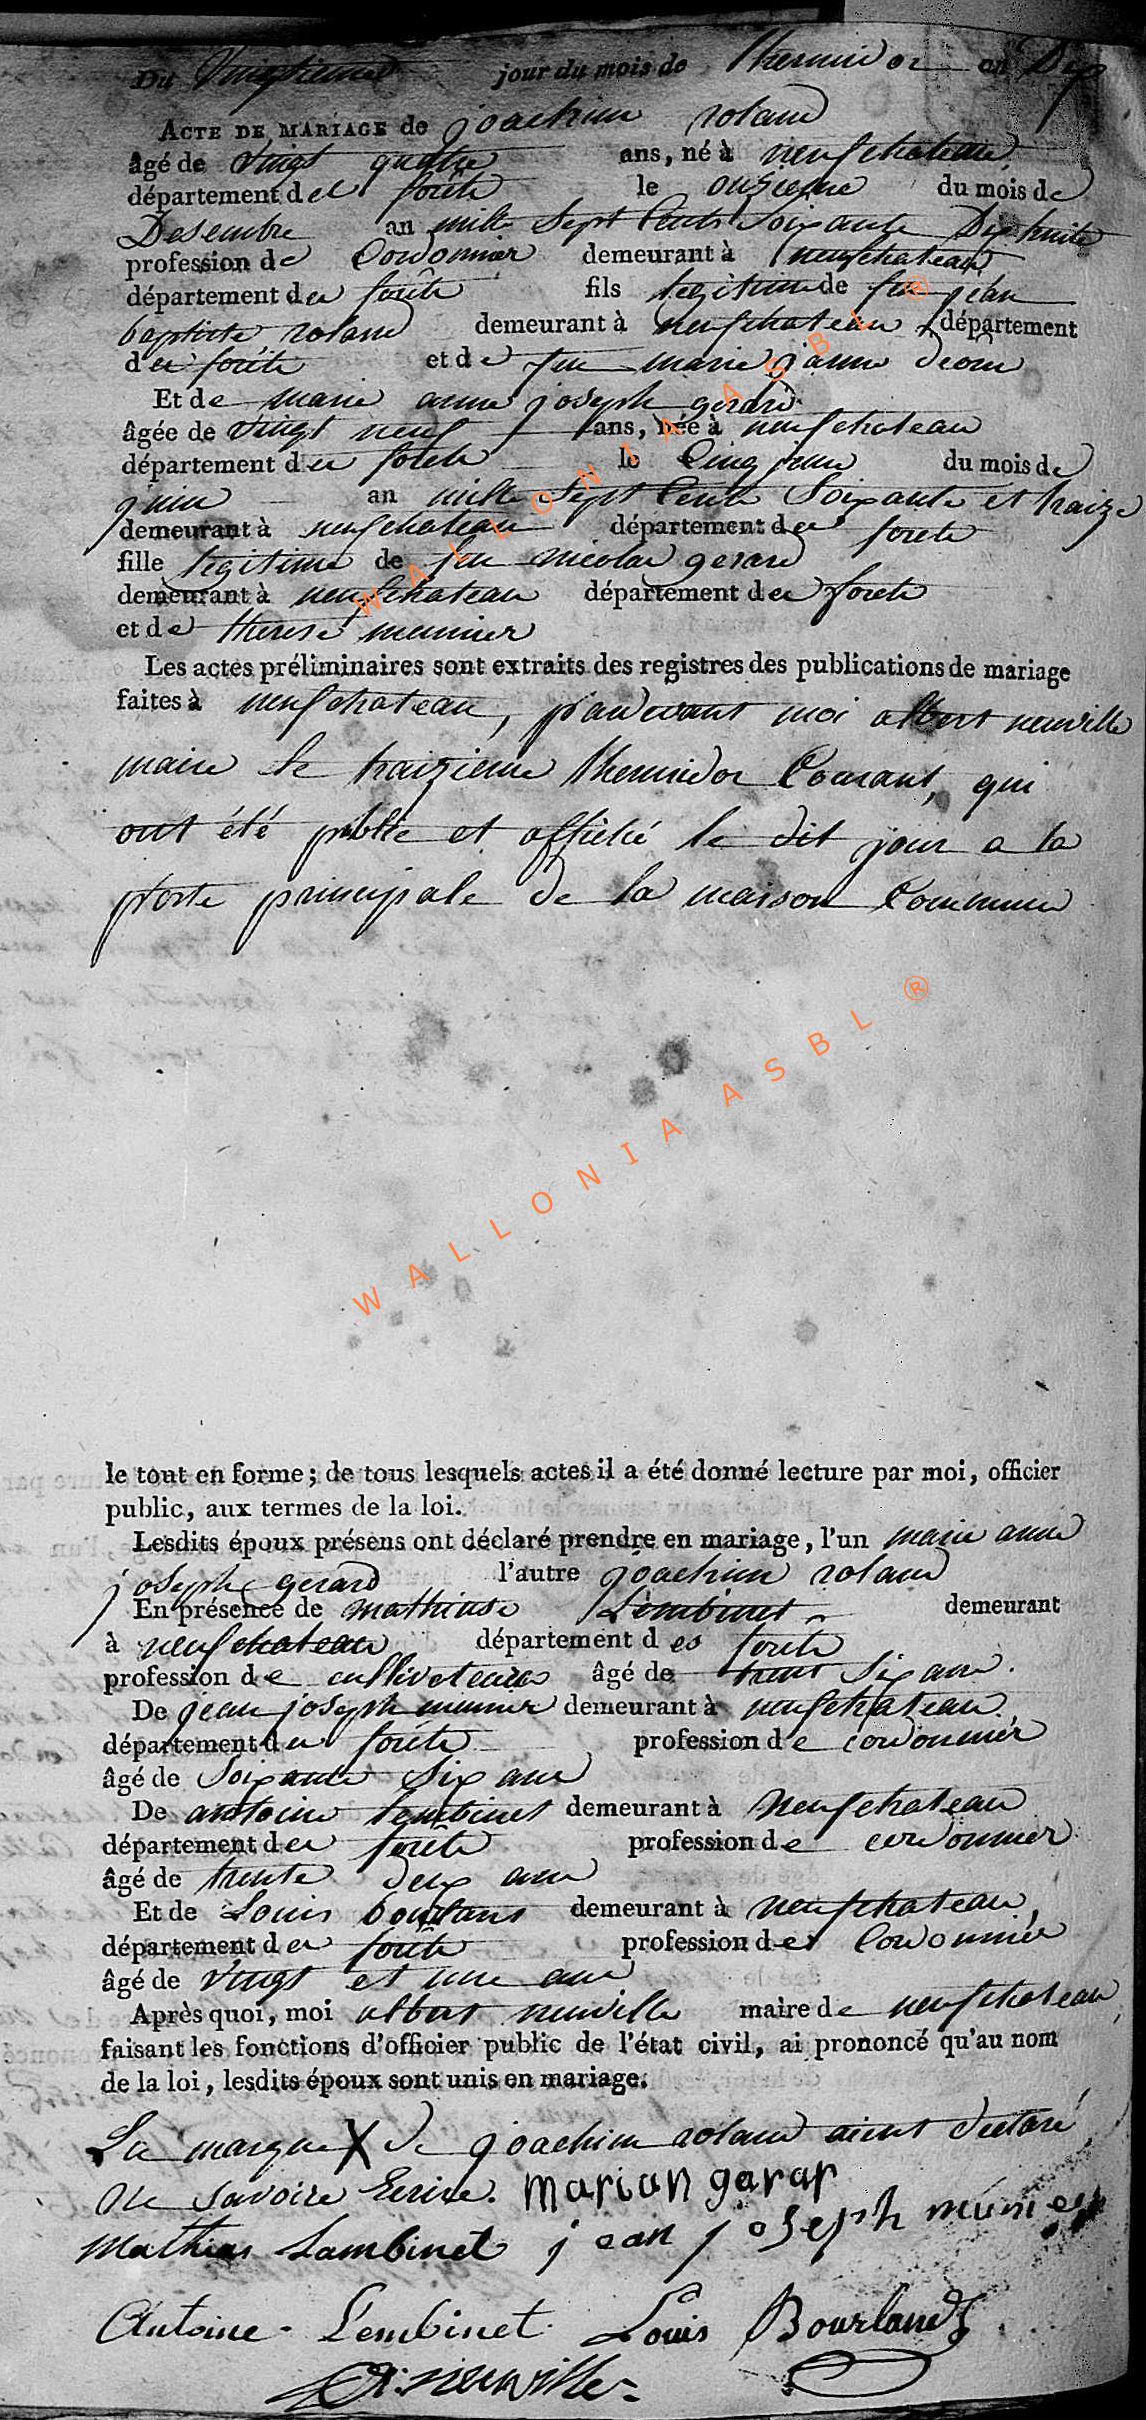 Du Vingtieme jour du mois de Thermidor an Dix
ACTE DE MARIAGE de joachim roland
âgé de Vingt quatre ans, né à neufchateau
département des forêts le onzieme du mois de
Desembre an mille Sept Cents Soixante Dix huite
profession de Cordonnier demeurant à neufchateau
département des forêts fils legitime de feu jean
baptiste roland demeurant à neufchateau département
des forêts et de feu marie janne
Et de marie anne joseph gerard
âgée de vingt neuf ans, née à neufchateau
département des forets le Cinq du mois de
juin an mille Sept Cents Soixante et traize
demeurant à neufchateau département des forets
fille legitime de feu nicolas gerard
demeurant à neufchateau département des forets
et de therese meunier
Les actes préliminaires sont extraits des registres des publications de mariage
faites à neufchateau, pardevant moi albert neuville
maire le traizieme thermidor Courant, qui
ont été publié et affiché le dit jour a la
porte principale de la maison Commune
le tout en forme; de tous lesquels actes il a été donné lecture par moi, officier
public, aux termes de la loi.
Lesdits époux présens ont déclaré prendre en mariage, l'un marie anne
joseph gerard l'autre joachim roland
En présence de mathias Lembinet demeurant
à neufchateau département des forêts
profession de cultivateur âgé de trent Six ans.
De jean joseph meunier demeurant à neufchateau
département des forêts profession de cordonnier
âgé de Soixante Six ans
De antoine Lembinet demeurant à Neufchateau
département des forêts profession de cordonnier
âgé de trente deux ans
Et de Louis bourlans demeurant à neufchateau,
département des forêts profession de Cordonnier
âgé de vingt et une ans
Après quoi, moi albert neuville maire de neufchateau
faisant les fonctions d'officier public de l'état civil, ai prononcé qu'au nom
de la loi, lesdits époux sont unis en mariage.
La marque X de joachim roland aient declaré
ne savoire Ecrire. marian garar
Mathias Lambinet jean joseph meunier
Antoine Lembinet Louis Bourlands
A: neuville
WALLONIA ASBL ®
WALLONIA ASBL ®